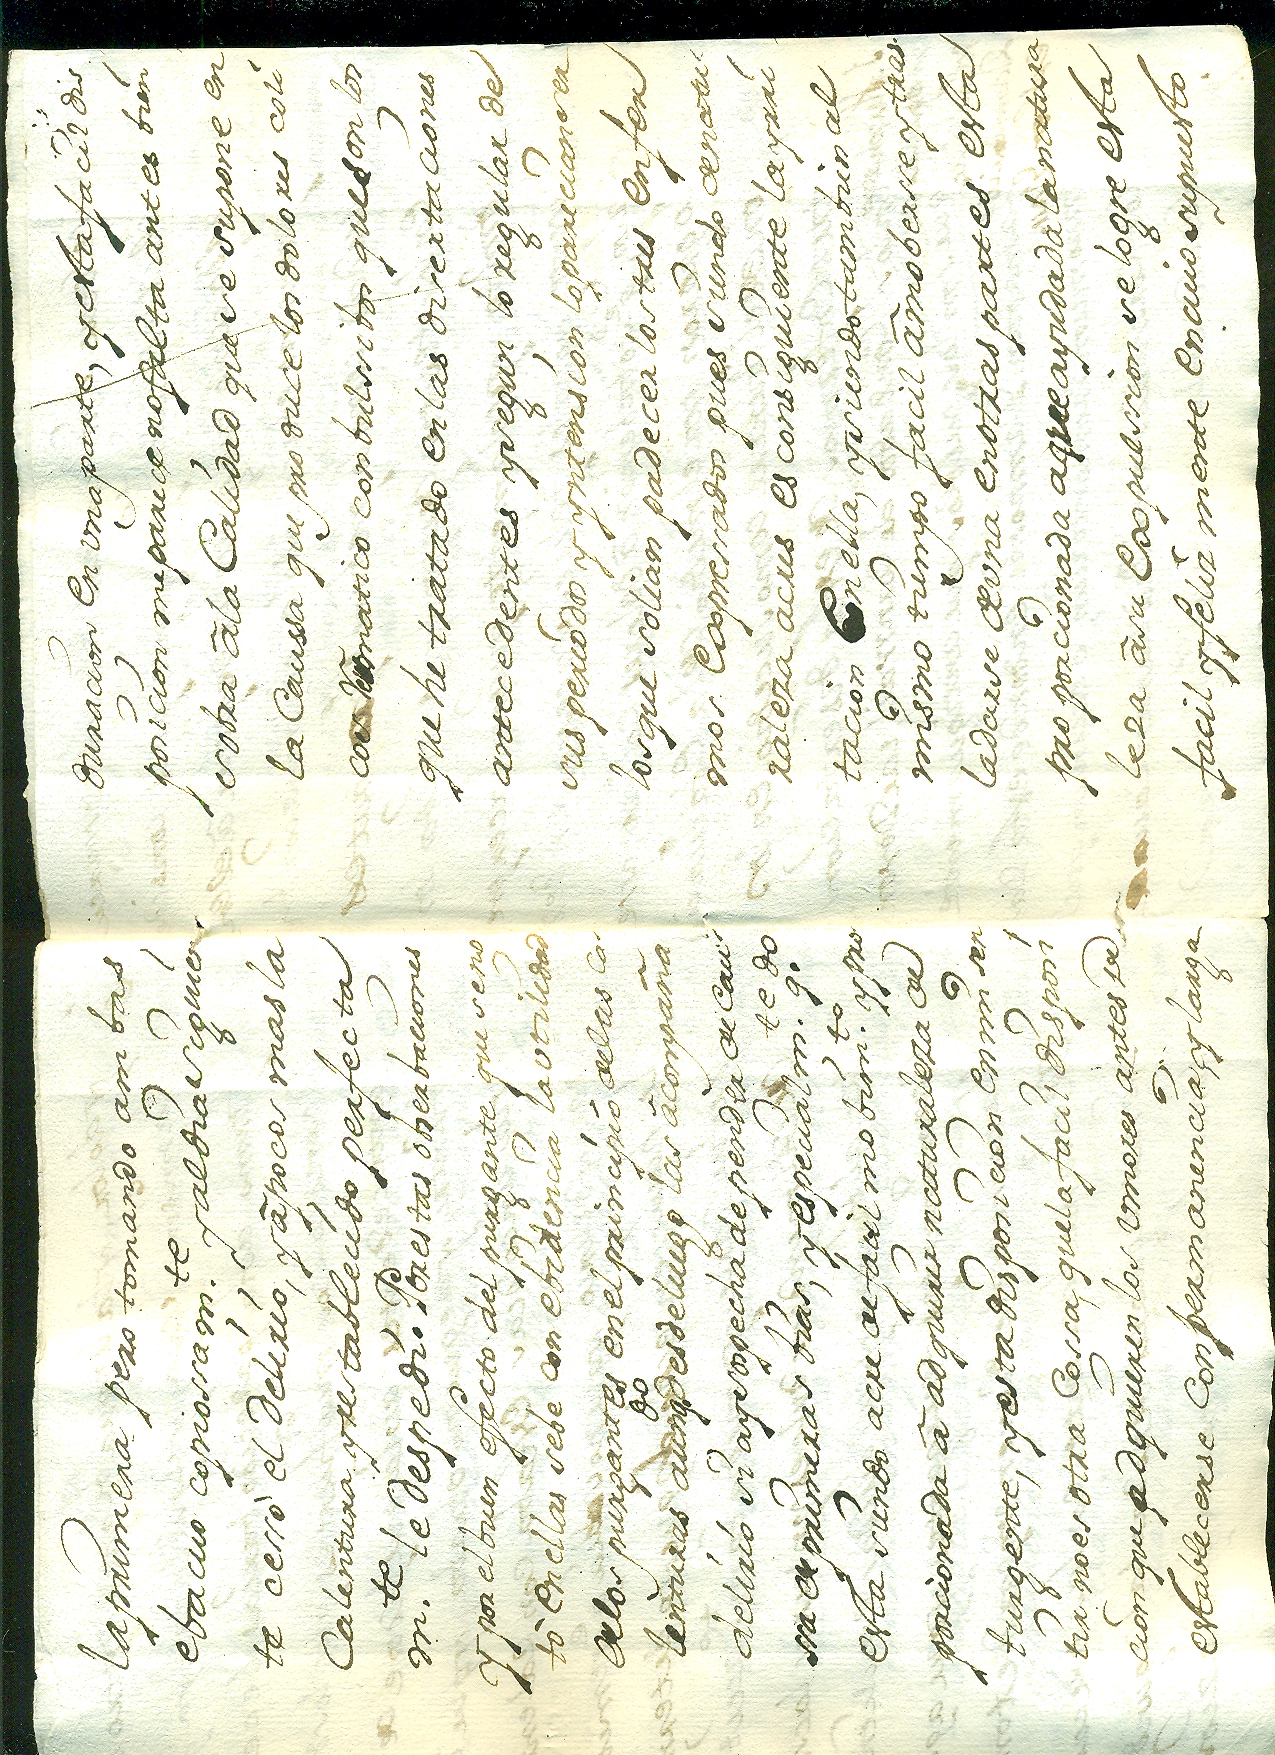 la primera pero tomando ambas
ebacuo copiosam.te y al dia siguien
te cerró el delirio, y à pocos mas la
Calentura y restablecido perfecta
m.te le despedi. Por estas obserbaciones
y por el buen efecto del purgante que se no
tò en ellas se be con ebidencia la utilidad
de los purgantes en el principio de las ca
lenturas aunq.do desde luego las acompaña
delirio si ay sospecha dependen de cau
sa de primeras bias, y especialm.te q.do
esta siendo acre de facil mobim.to y pro
porcionada à adquirir naturaleza de
turgente, y esta disposicion en mi sen
tir no es otra Cossa, que la facil disposi
cion que adquieren los umores antes de
establecerse con permanencia, y larga
duracion en una parte, y esta facil dis
posicion me parece no falta antes bien
sobra à la Calidad que se supone en
la Caussa que produce los dolores coli
cos convulsibos que son los
que he tratado en las disertaciones
antecedentes y segun lo regular de
sus periodos y yntension lo parecian ser
los que solian padecer los tres enfer
mos Expresados pues siendo de natu
raleza acre es consiguiente la yrri
tacion en ella, y siendo tambien al
mismo tiempo facil à moberse y tras
ladarse de una en otras partes esta
proporcionada a que ayudada la natura
leza à su Expulsion se logre esta
facil y feliz mente en cuio supuesto